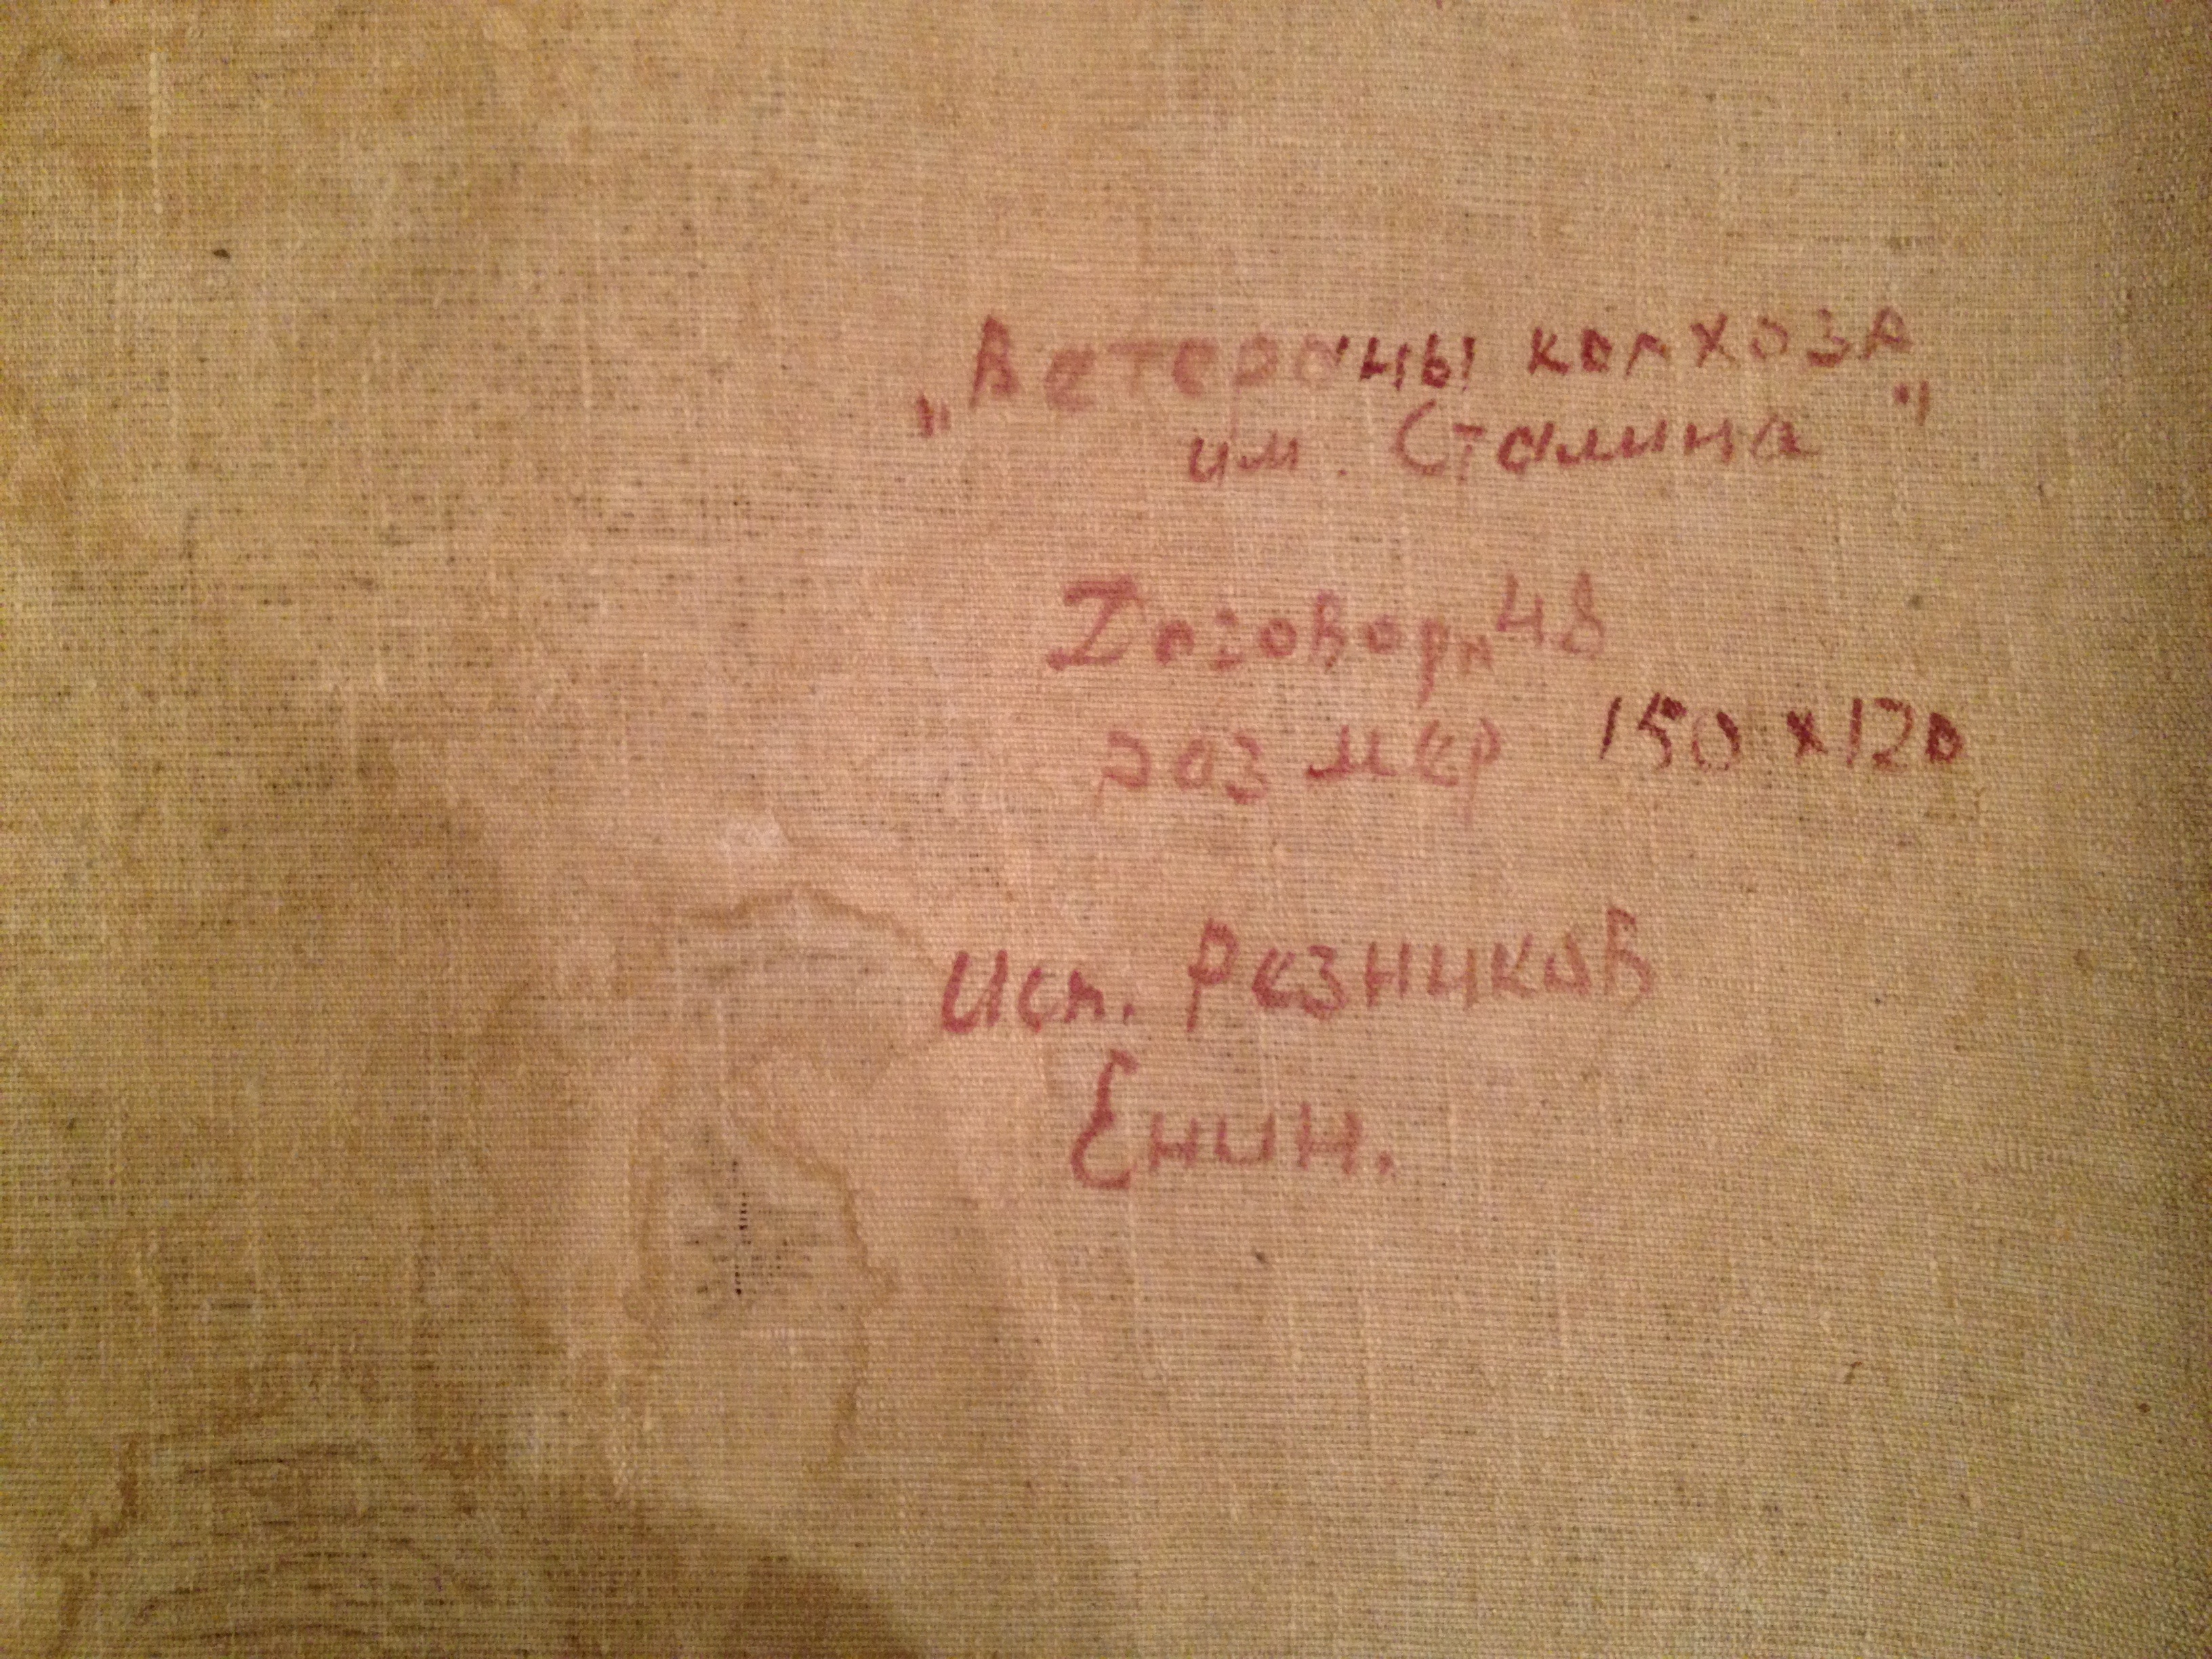 „Ветераны колхоза
им. Сталина"
Договор н 48
размер 150 х 120
Исп. Резников
Енин.